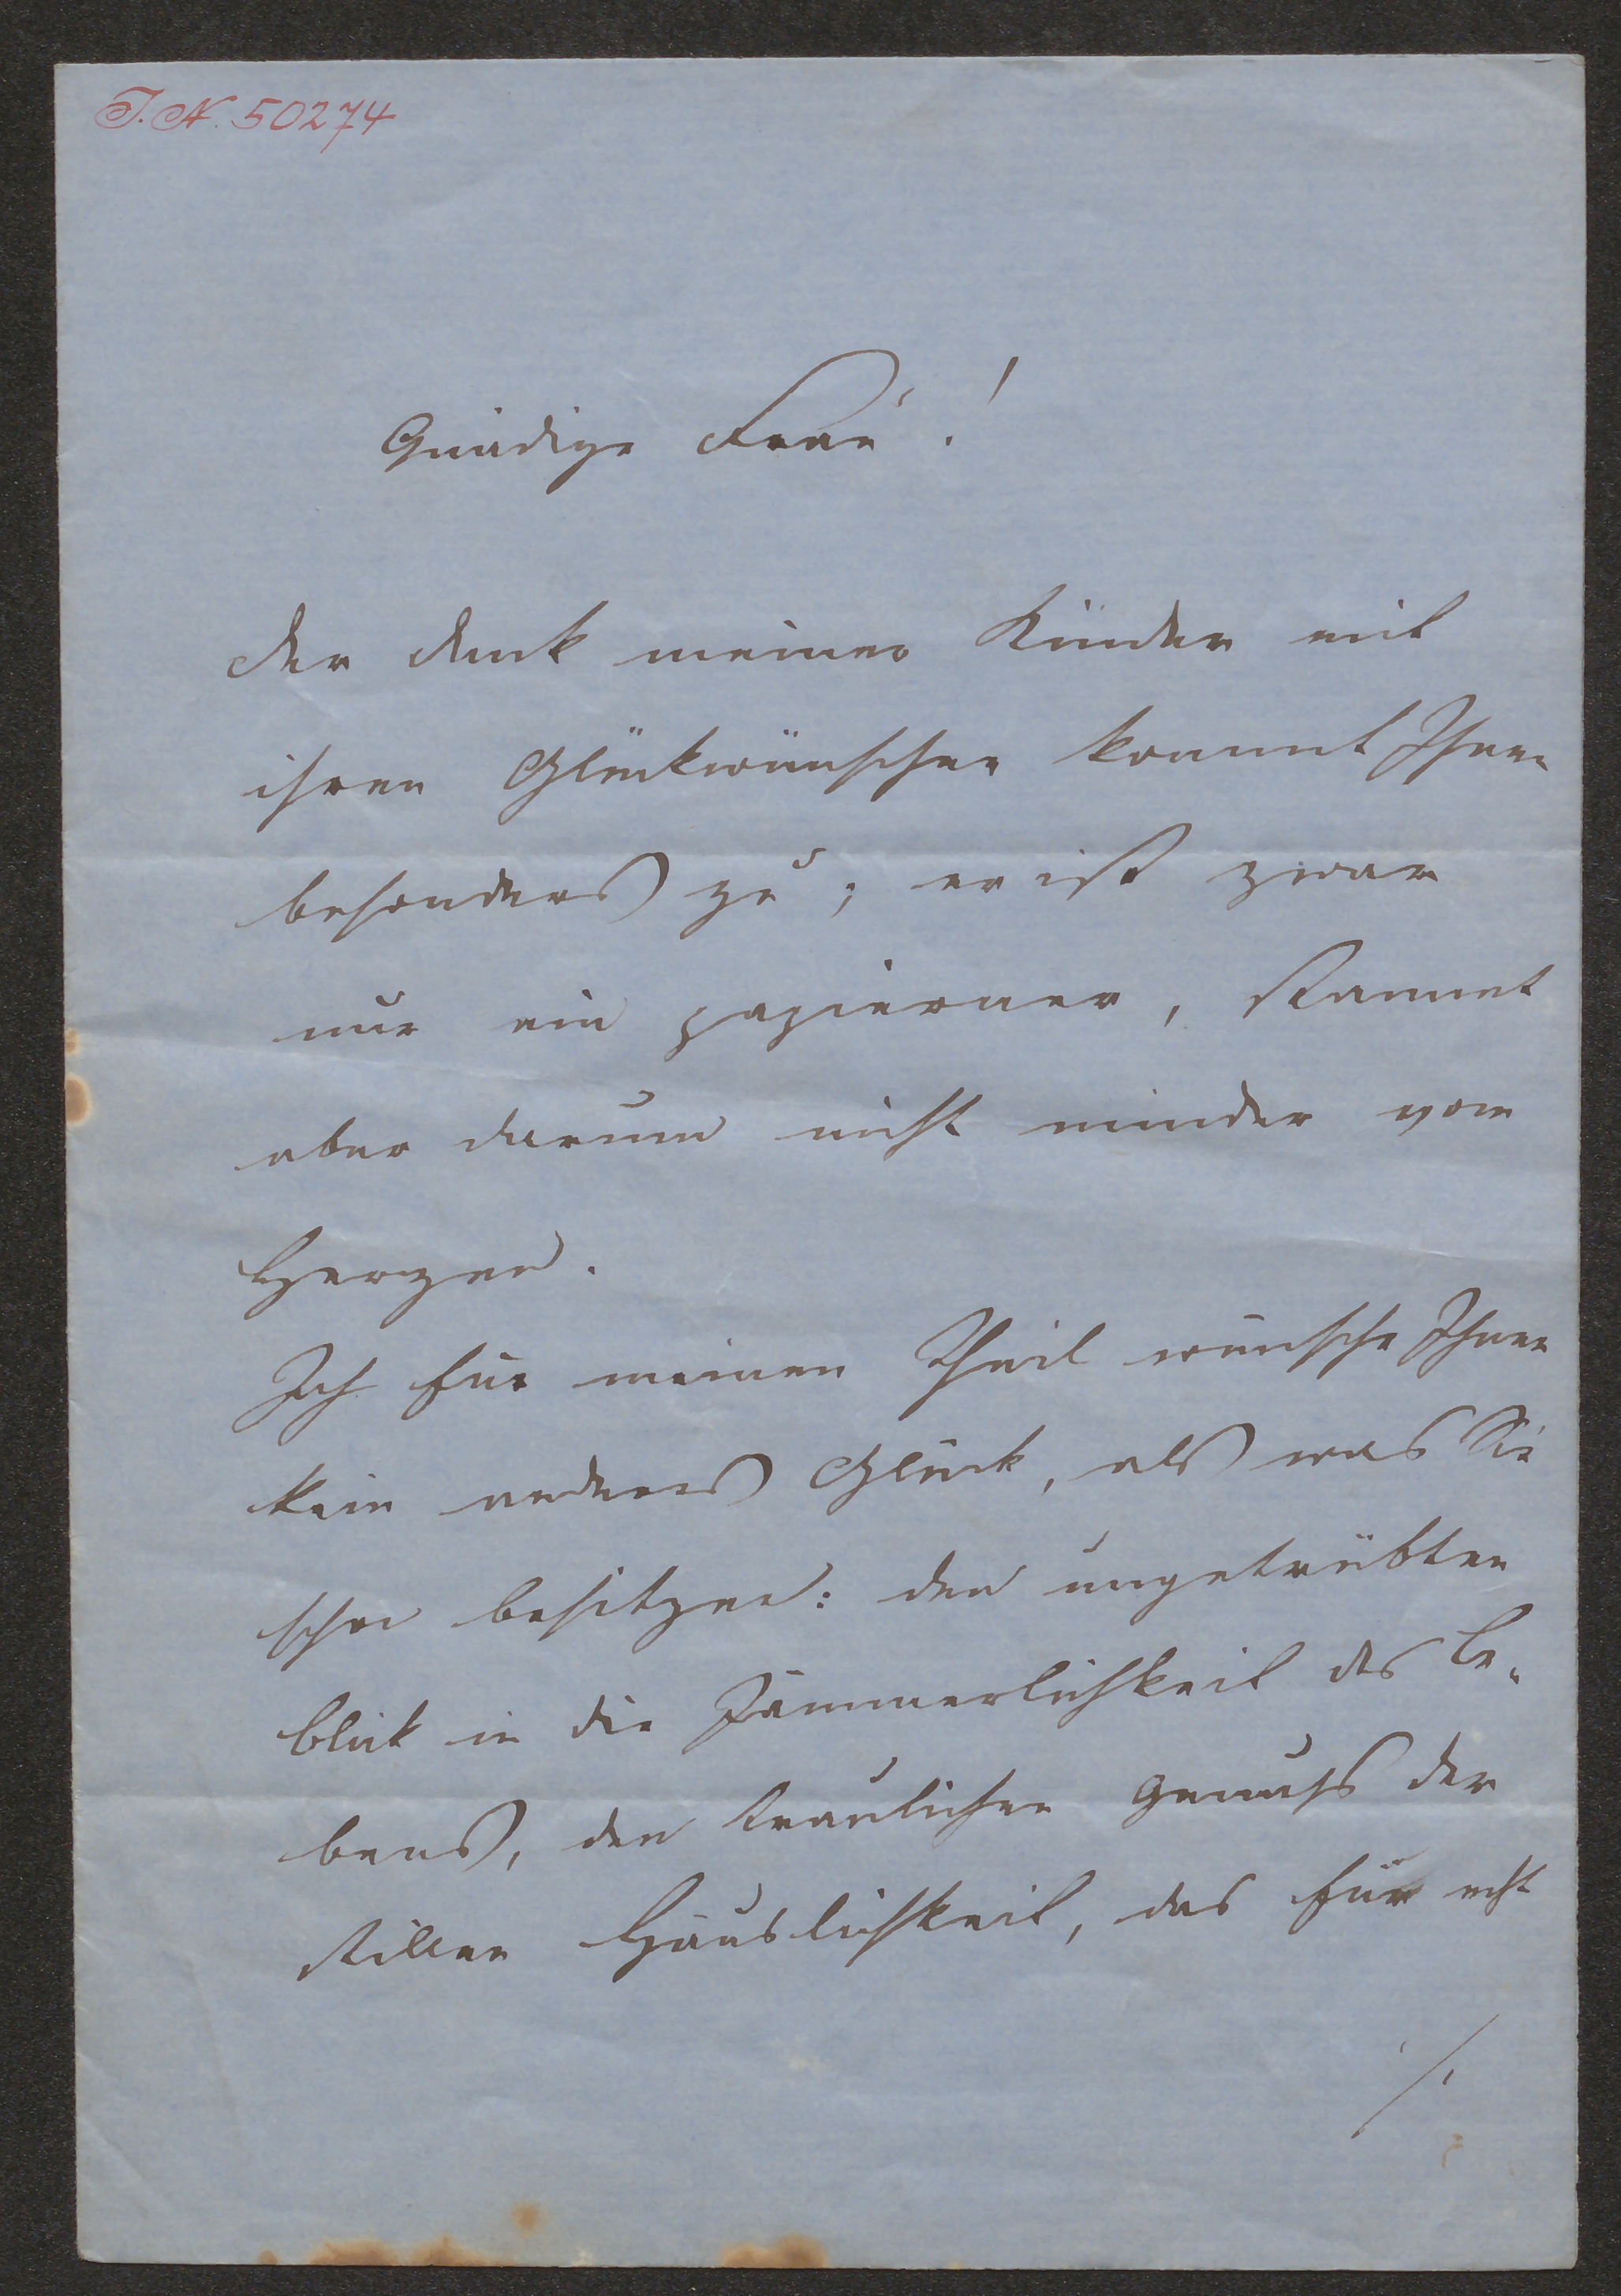 J.N. 50274
Gnädige Frau!
Der Dank meiner Kinder mit
ihren Glückwünschen kommt Ihnen
besonders zu; er ist zwar
nur ein papierner, stammt
aber darum nicht minder vom
Herzen.
Ich für meinen Theil wünsche Ihnen
kein anderes Glück, als was Sie
schon besitzen: den ungetrübten
Blick in die Jämmerlichkeit des Le-
bens, den traulichen Genuss der
stillen Häuslichkeit, das für echt
./.